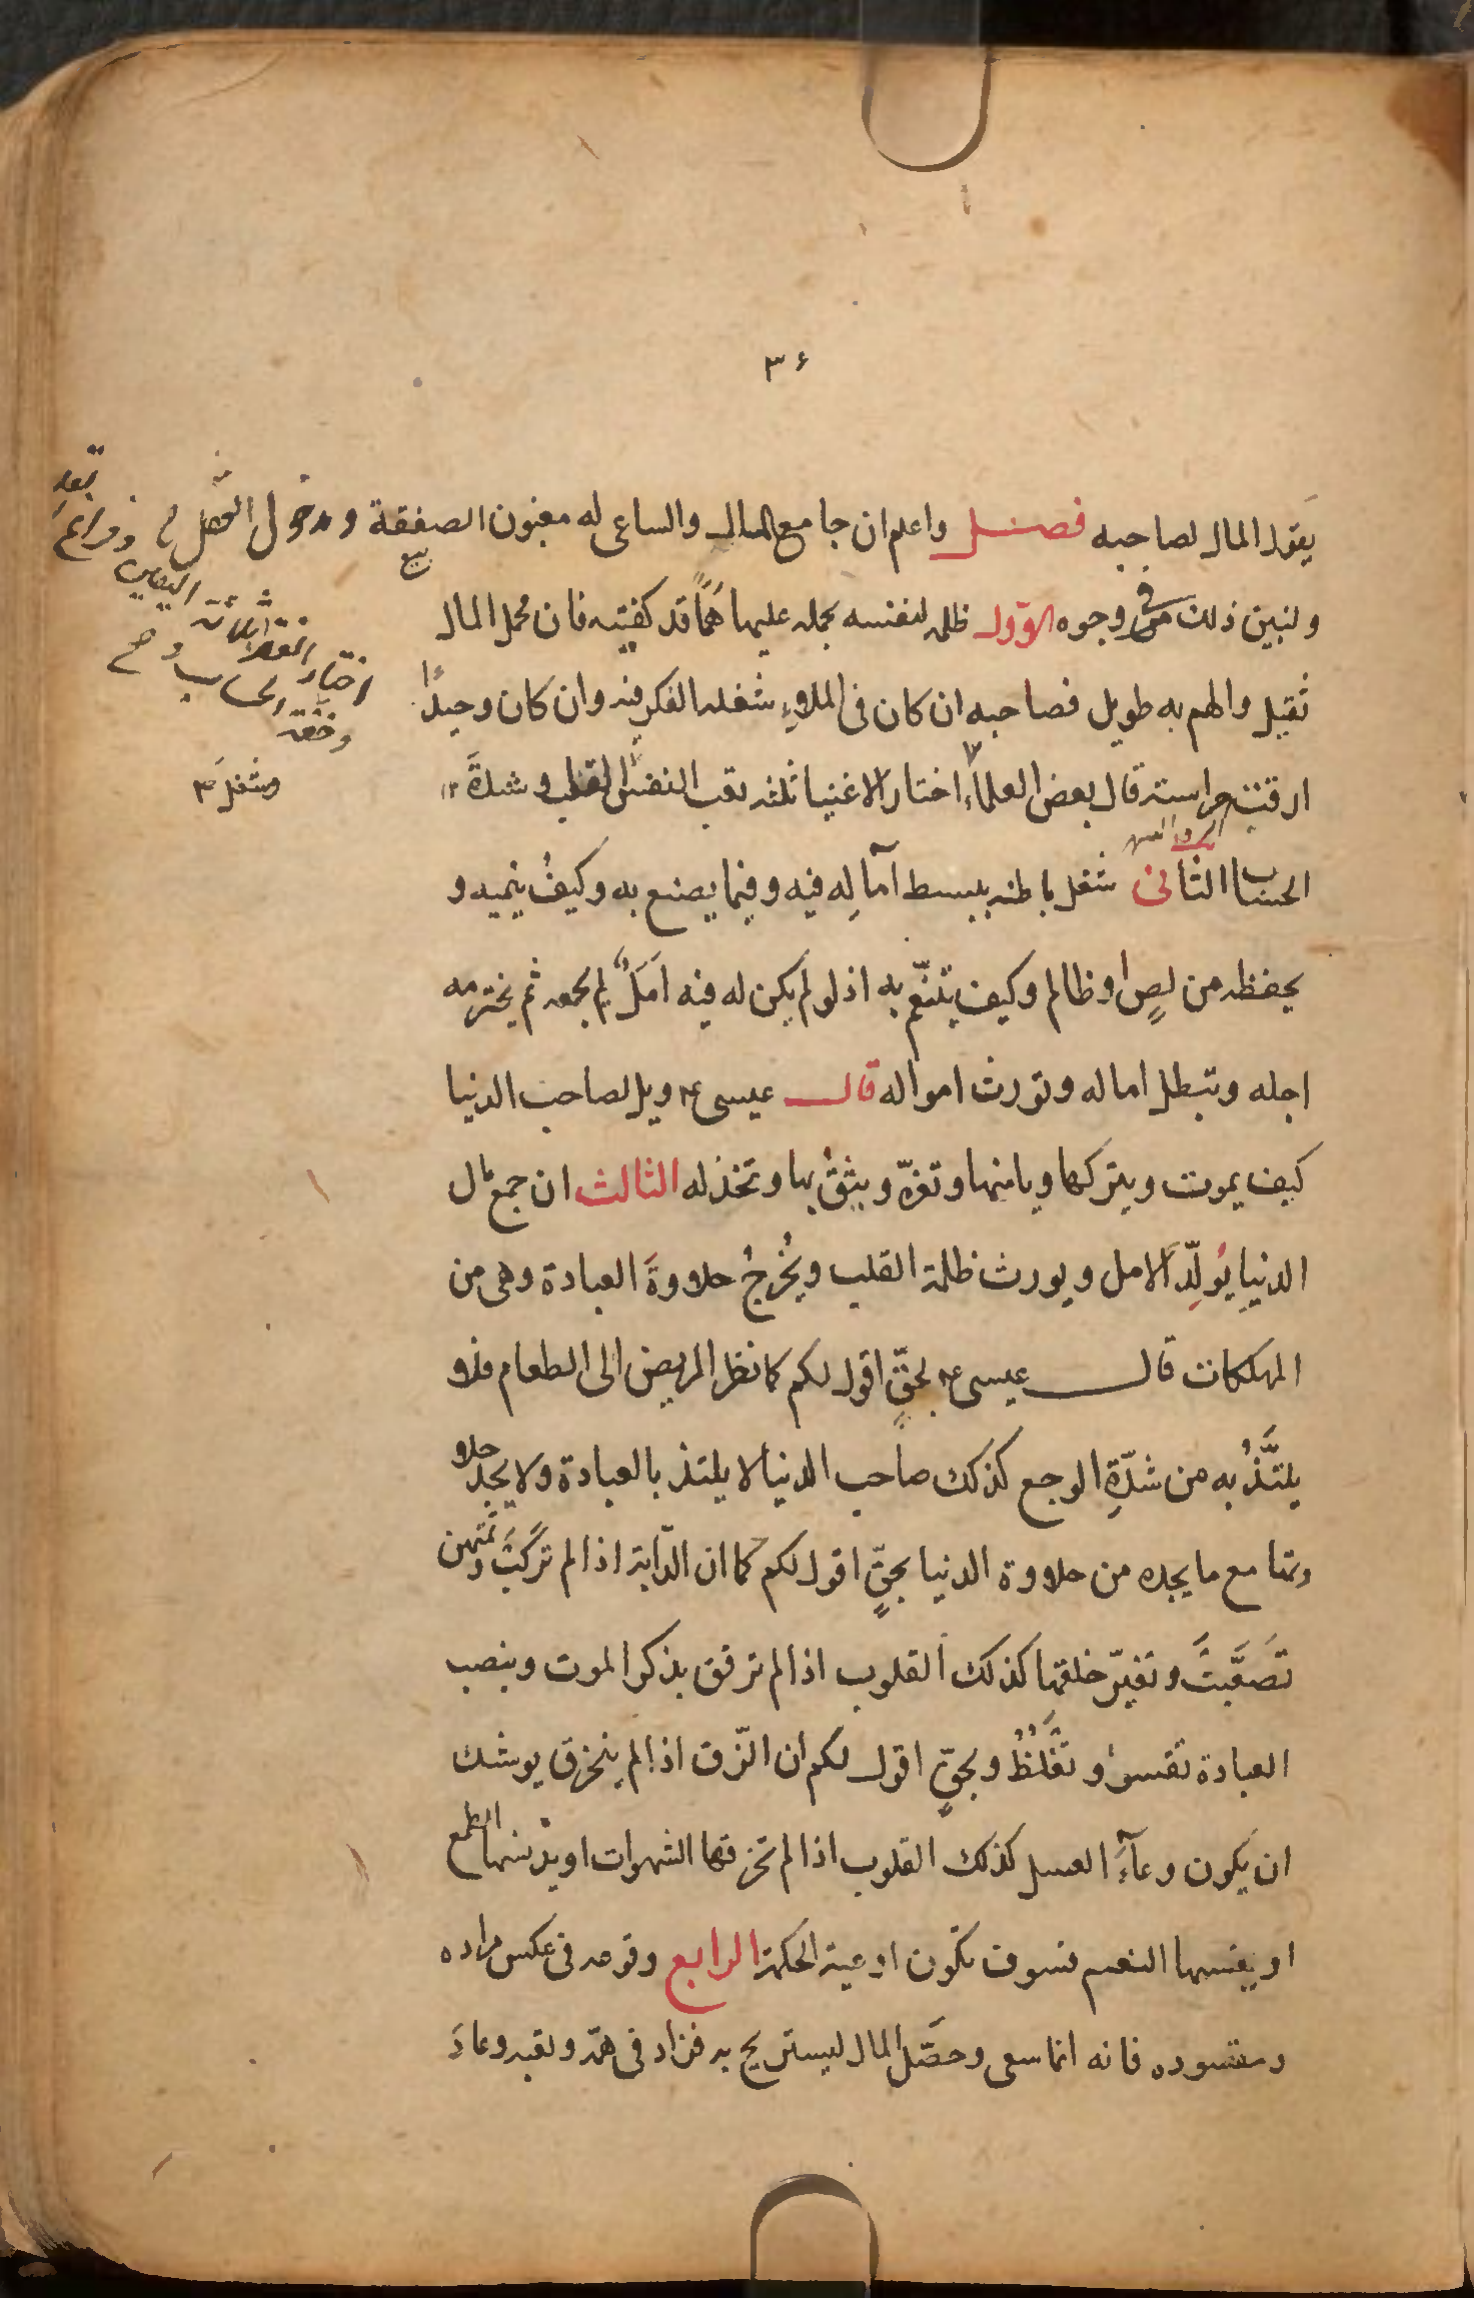 ٣۶
يقول المال لصاحبه فصل واعلم ان جامع المال والساعى له مغبون الصفقة ومدخول العقل
ولنبين ذلك فى وجوه الاول ظلمه لنفسه بحمله عليها هما قد كفيته فان محمل المال
ثقيل والهم به طويل فصاحبه ان كان فى الملاء شغله الفكر فيه وان كان وحيدا
ارقته حراسته قال بعض العلماء اختار الاغنيا ثلثه تعب النفس وشغل القلب وشدة
الحساب الثانى شغل باطنه ببسط آماله فيه وفيما يصنع به وكيف ينميه و
يحفظه من لصٍ او ظالم وكيف يتنعّم به اذ لو لم يكن له فيه املٌ لم يجمعه ثم يخترمه
اجله وتبطل اماله وتورث امواله قال عيسى ع ويل لصاحب الدنيا
كيف يموت ويتركها ويامنها وتغرّه ويثقُ بها وتخذله الثالث ان جمع مال
الدنيا يُولِّد الامل ويورث ظلمة القلب ويُخرجُ حلاوةَ العبادة وهى من
المهلكات قال عيسى ع بحقٍّ اقول لكم كما نظر المريض الى الطعام فلا و
يلتَّذُ به من شدّةِ الوجع كذلك صاحب الدنيا لا يلتذ بالعبادة ولا يجد حلاو
وتها مع ما يجده من حلاوة الدنيا بحقٍّ اقول لكم كما ان الدّابة اذا لم تركبَ وتمتهن
تَصَعَّبتَ وتغيّر خلقها كذلك القلوب اذا لم ترقق بذكر الموت وبنصب
العبادة تقسو وتغَّلظُ وبحقٍّ اقول لكم ان الزّق اذا لم ينخرق يوشك
ان يكون وعآءَ العسل كذلك القلوب اذا لم تخرقها الشهوات او يدنسها الطمع
او يقسيها النعم فسوف تكون اوعية الحكمة الرابع وقوعه فى عكس مراده
ومقصوده فانه انما سعى وحصّل المال ليستريح به فزاد فى همّه وتعبه وعادَ